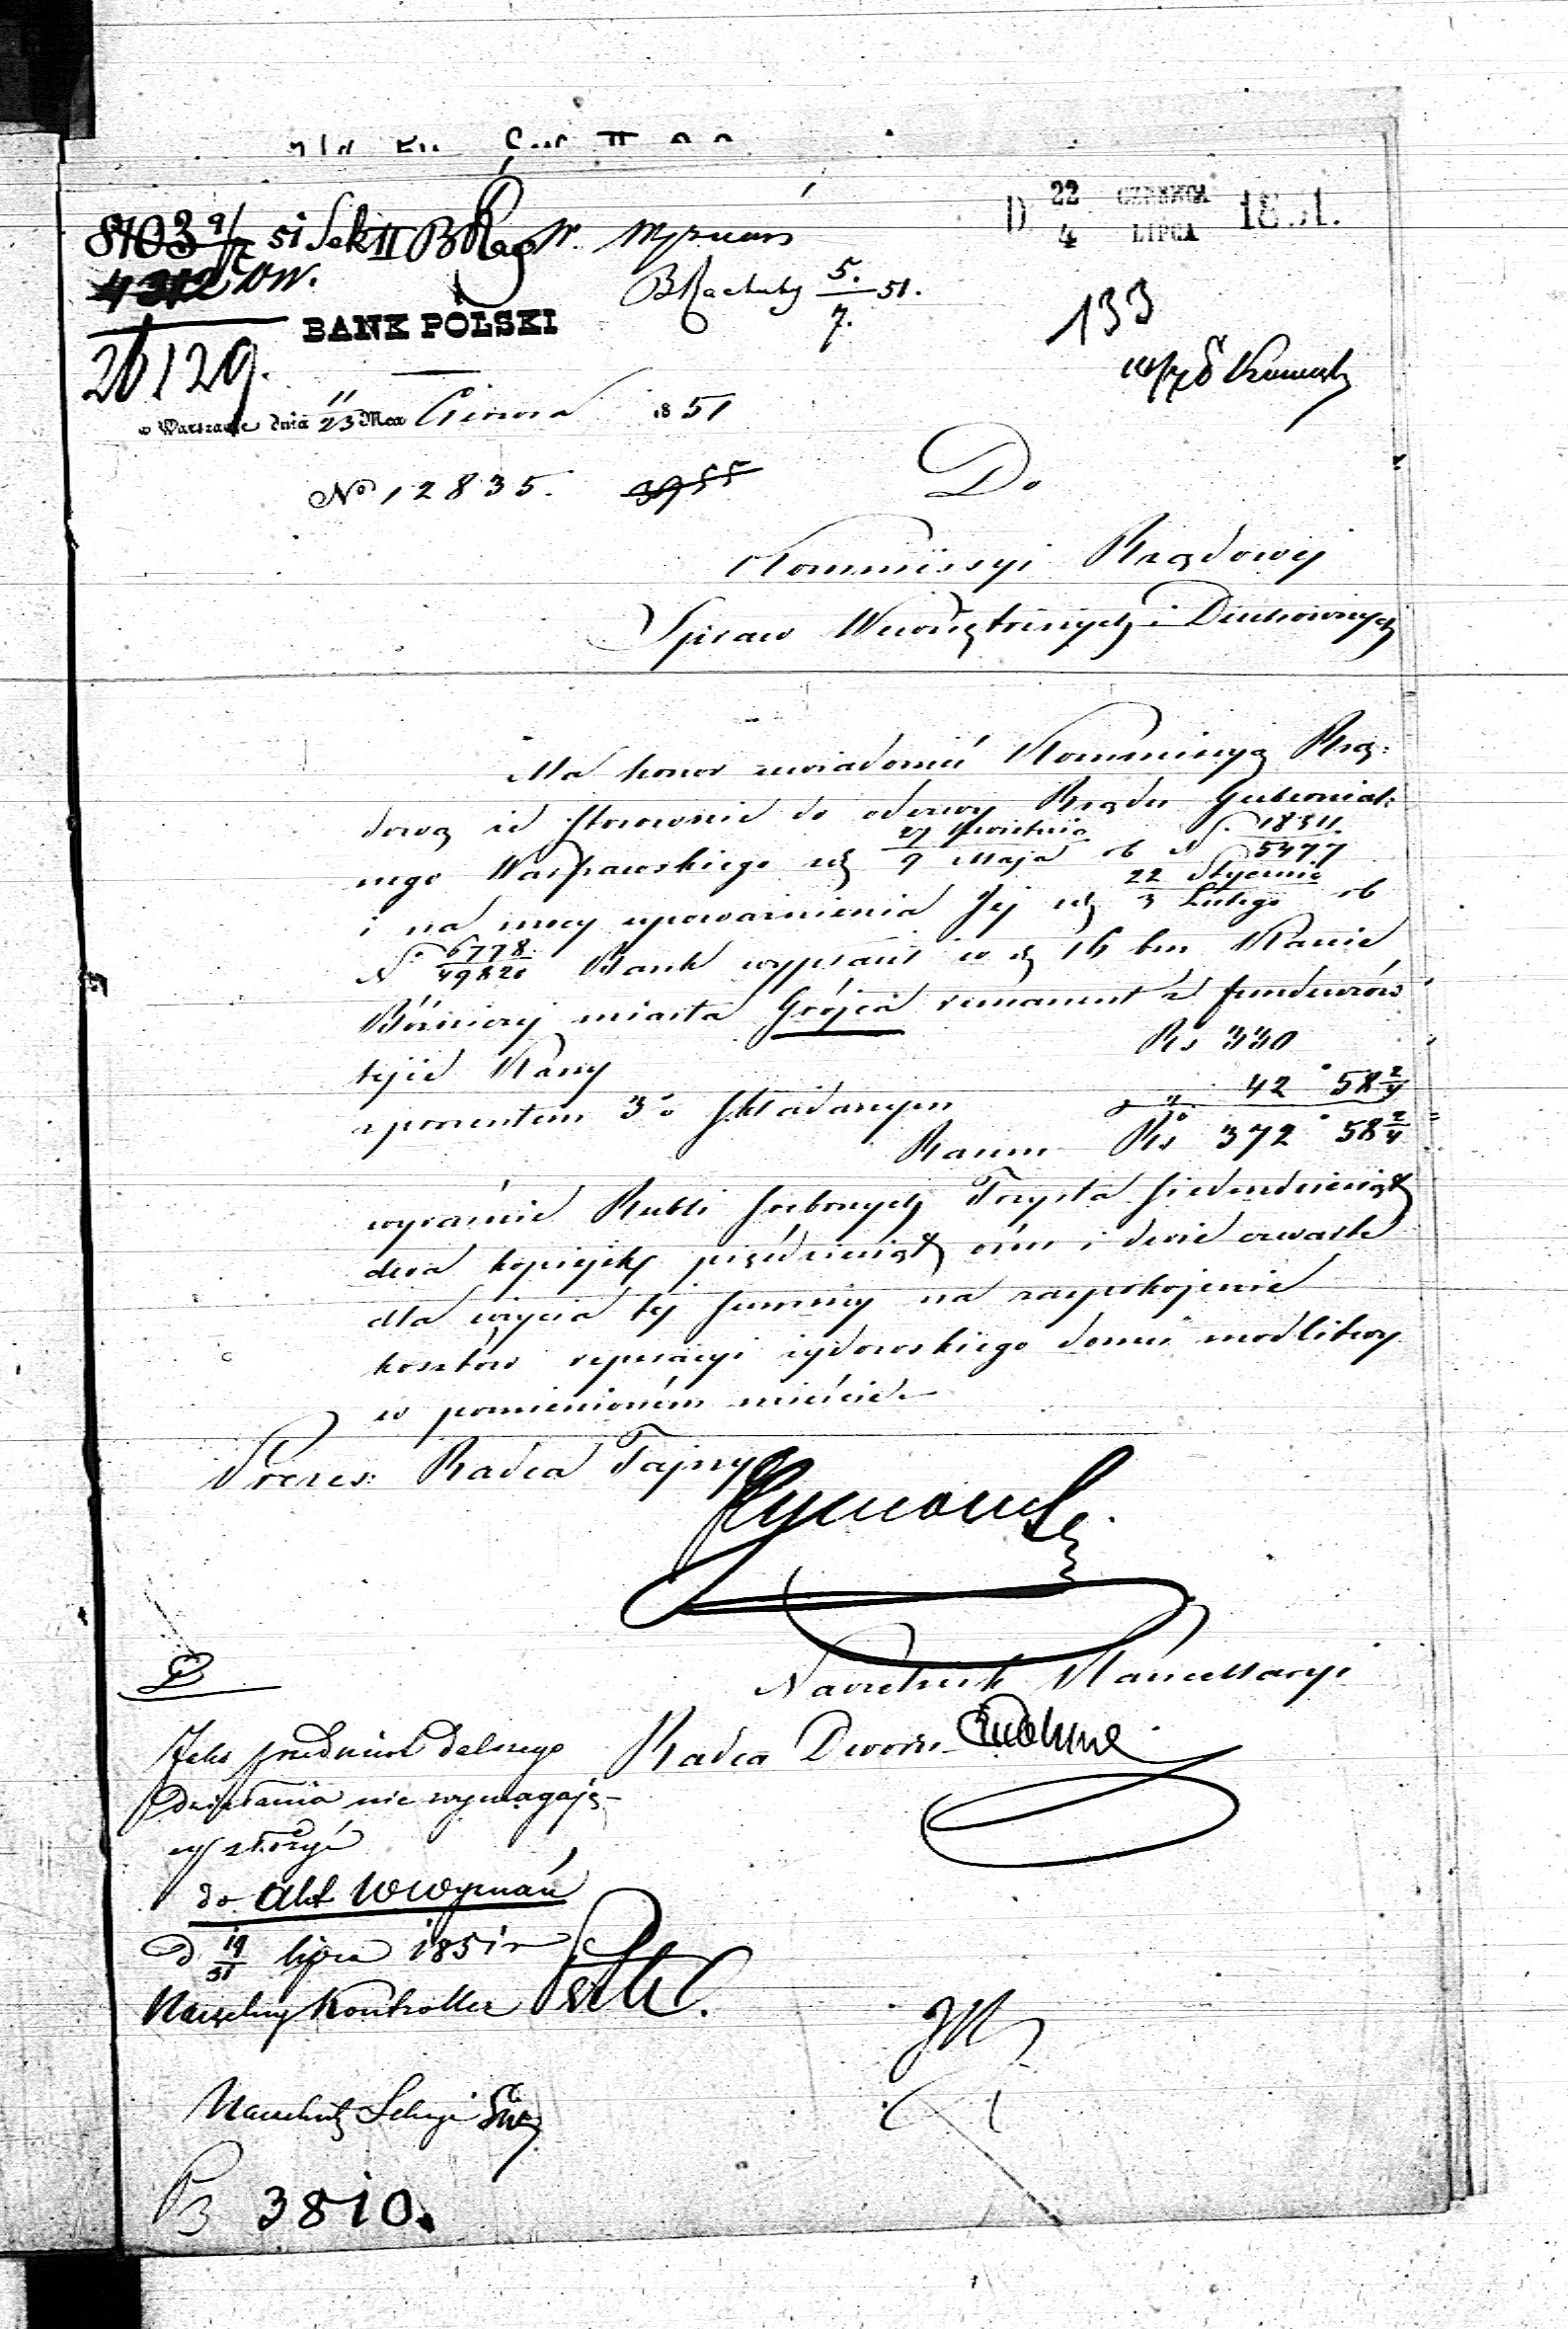 8103 9/7 51 Sek II
26129.
BANK POLSKI
w Warszawie dnia 11/23 Mca Czerwca 1851
No 12835. 3955
D. 22 CZERWCA / 4 LIPCA 1851.
5./7. 51.
133
Do
Kommissyi Rządowéj
Spraw Wewnętrznych i Duchownych
Ma honor uwiadomić Kommissyą Rzą=
dową iż stosownie do odezwy Rządu Gubernial=
nego Warszawskiego z d. 27 Kwietnia / 9 Maja rb N. 18311 / 5477
i na mocy upoważnienia Jej z d. 22 Stycznia / 3 Lutego rb
N. 6778 / 49820 Bank wypłacił w d. 16 bm Kassie
Bóżniczéj miasta Grójca remanent z funduszów
tejże Kassy Rs 330
z procentem 3% składanym " 42 " 58 2/4
Razem Rs 372 " 58 2/4
wyraźnie Rubli srebrnych Trzysta siedmdziesiąt
dwa kopiejek pięćdziesiąt ośm i dwie czwarte
dla użycia téj summy na zaspokojenie
kosztów reperacyi żydowskiego domu modlitwy
w pomienioném mieście.
Prezes Radca Tajny
Naczelnik Kancellaryi
Radca Dworu
Jako przedmiot dalszego
działania nie wymagają-
cy złożyć
do akt
d 19/31 lipca 1851 r
Naczelny Kontroller
Naczelnik Sekcyi
3810.